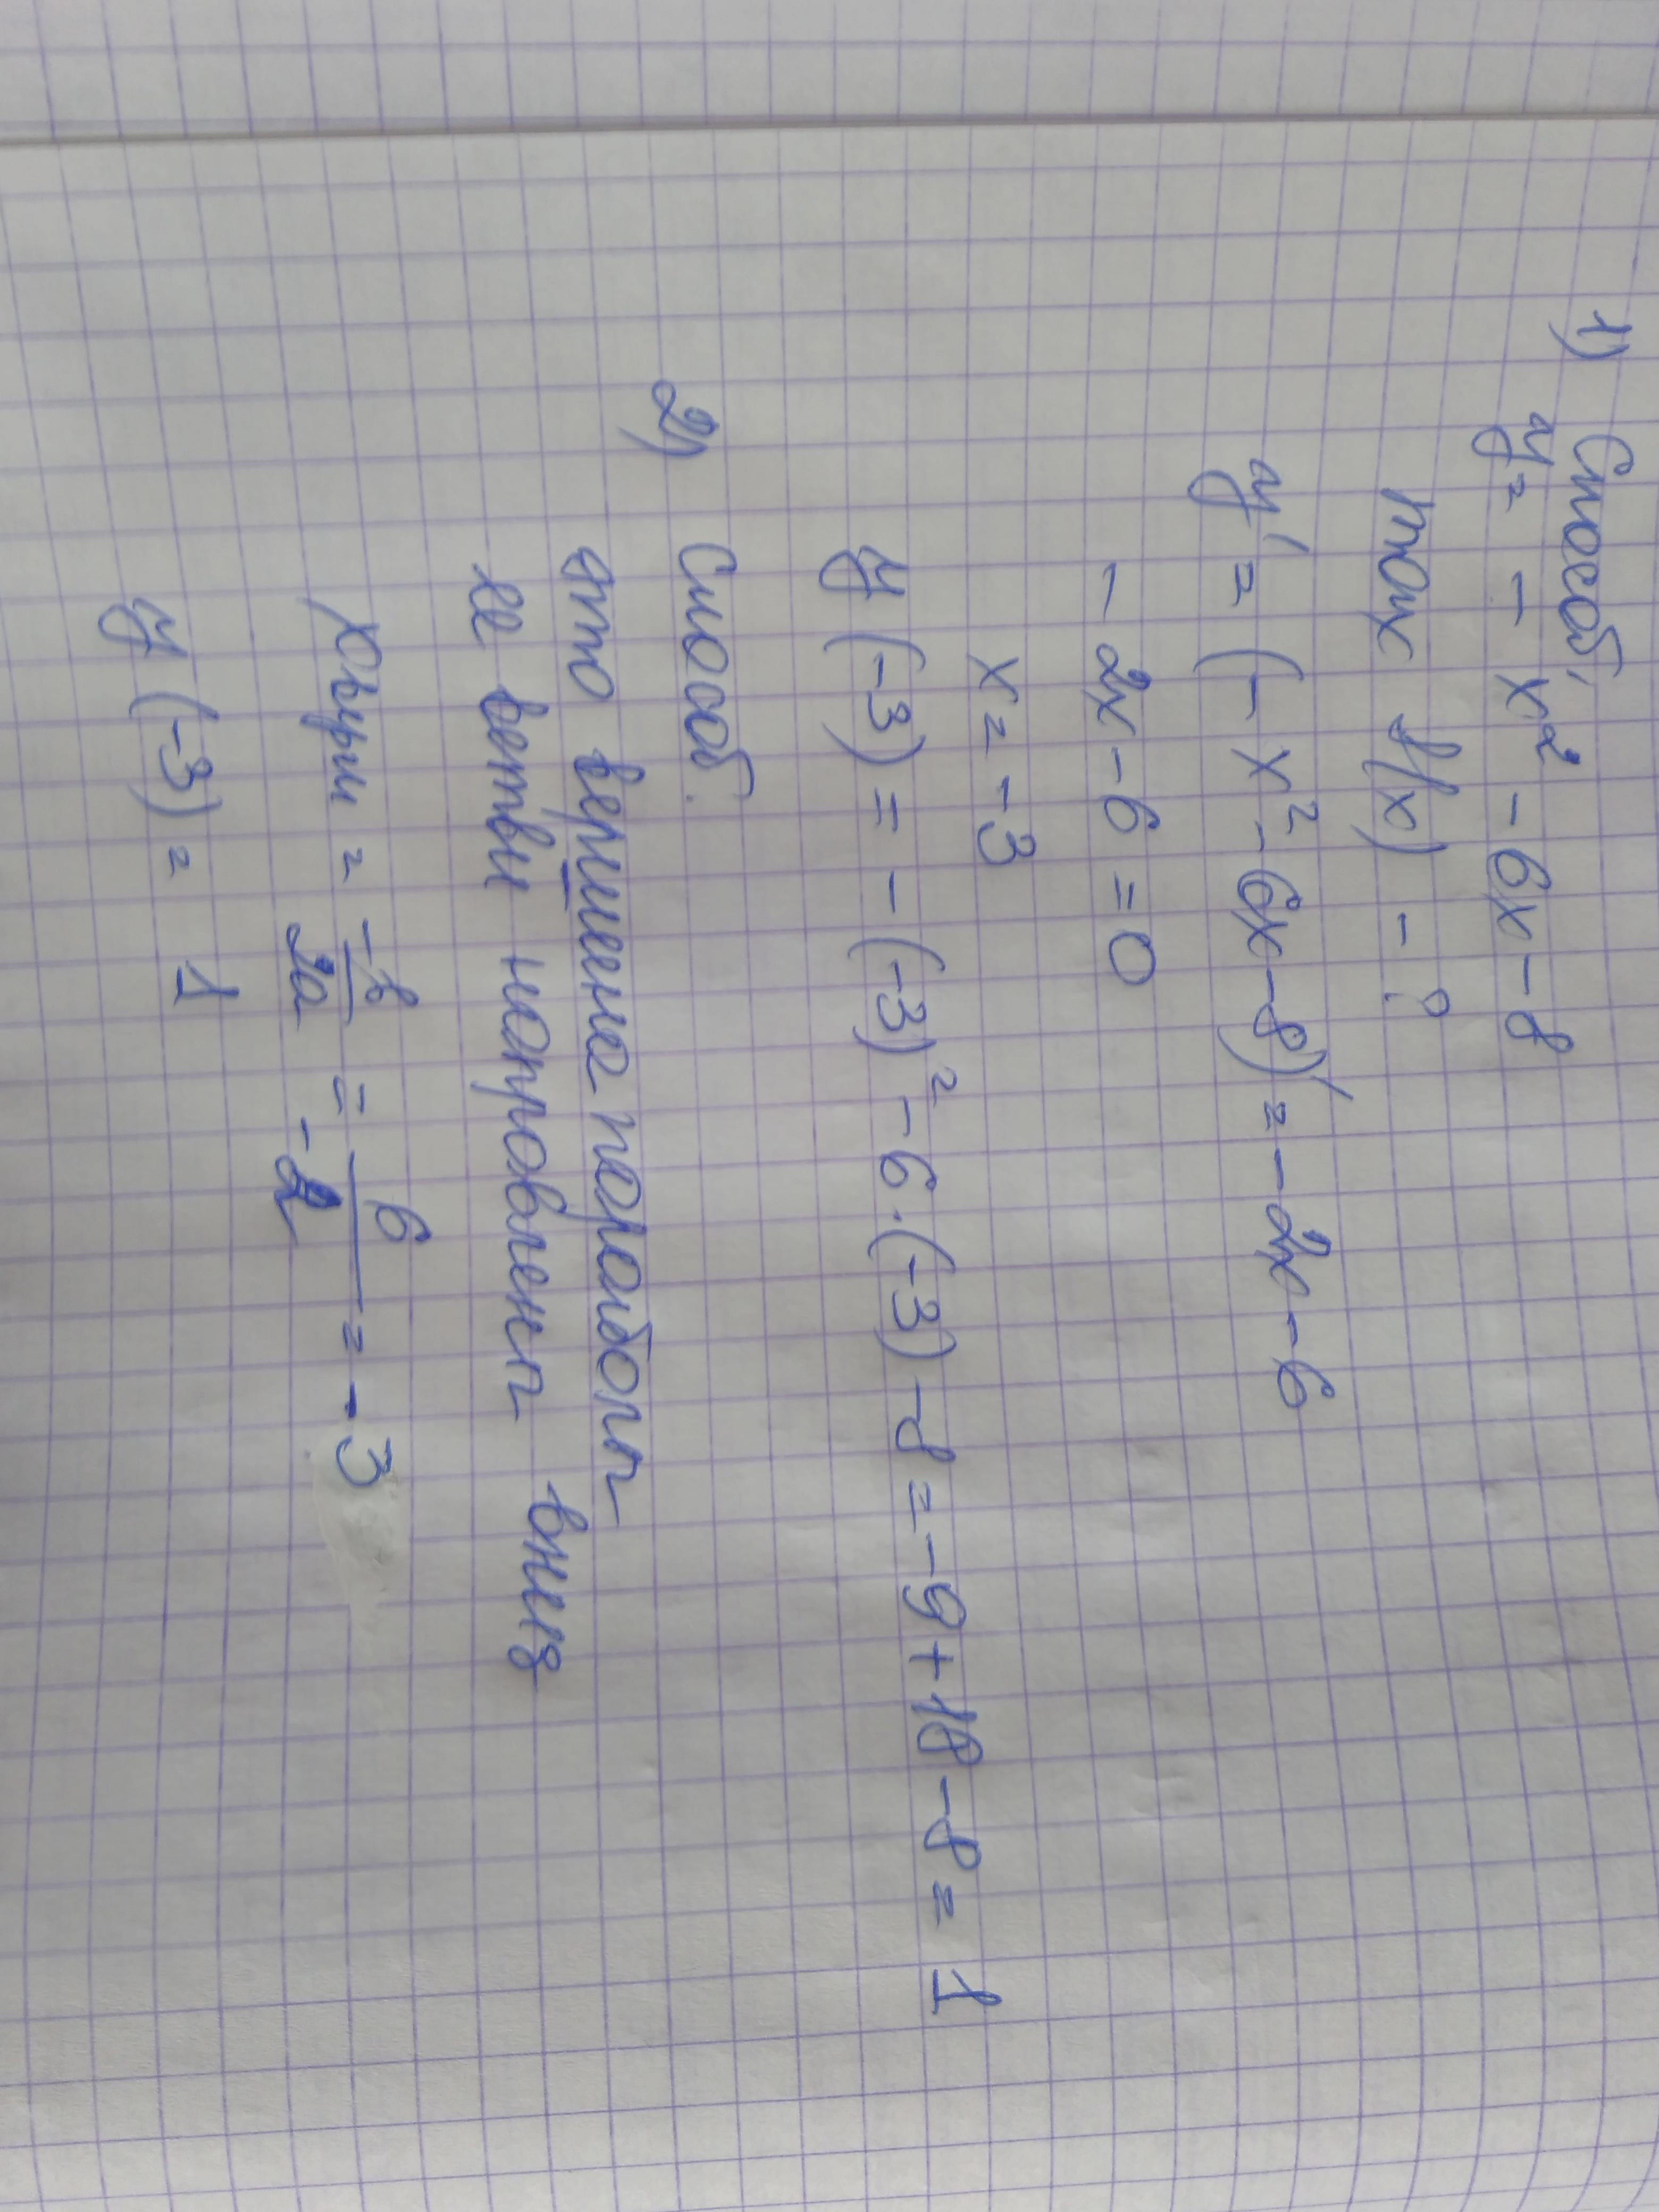 1) Способ,
y = - x² - 6x - 8
max f(x) - ?
y' = (- x² - 6x - 8)' = - 2x - 6
- 2x - 6 = 0
x = -3
y (-3) = - (-3)² - 6·(-3) - 8 = -9 + 18 - 8 = 1
2) Способ.
это вершина параболы
ее ветви направлены вниз
x верш = -b/2a = 6/-2 = -3
y (-3) = 1